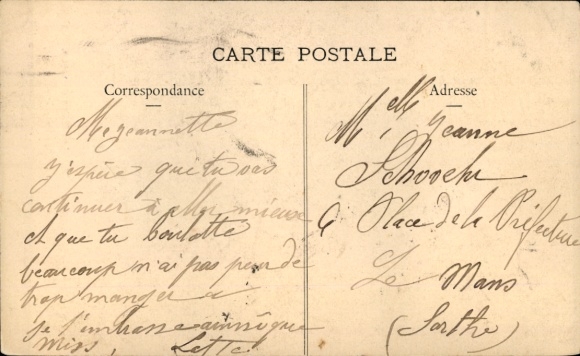 CARTE POSTALE
Correspondance
Adresse
Ma Jeannette
j'espère que tu vas
continuer à aller mieux
et que tu boulotte
beaucoup n'ai pas peur de
trop manger
je t'embrasse ainsi que
Miss,
Melle Jeanne
6 Place de la Préfecture
Le Mans
(Sarthe)